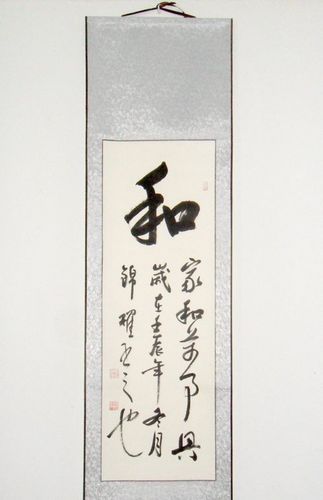 和
家和萬事興
歲在壬辰年冬月
錦耀之也